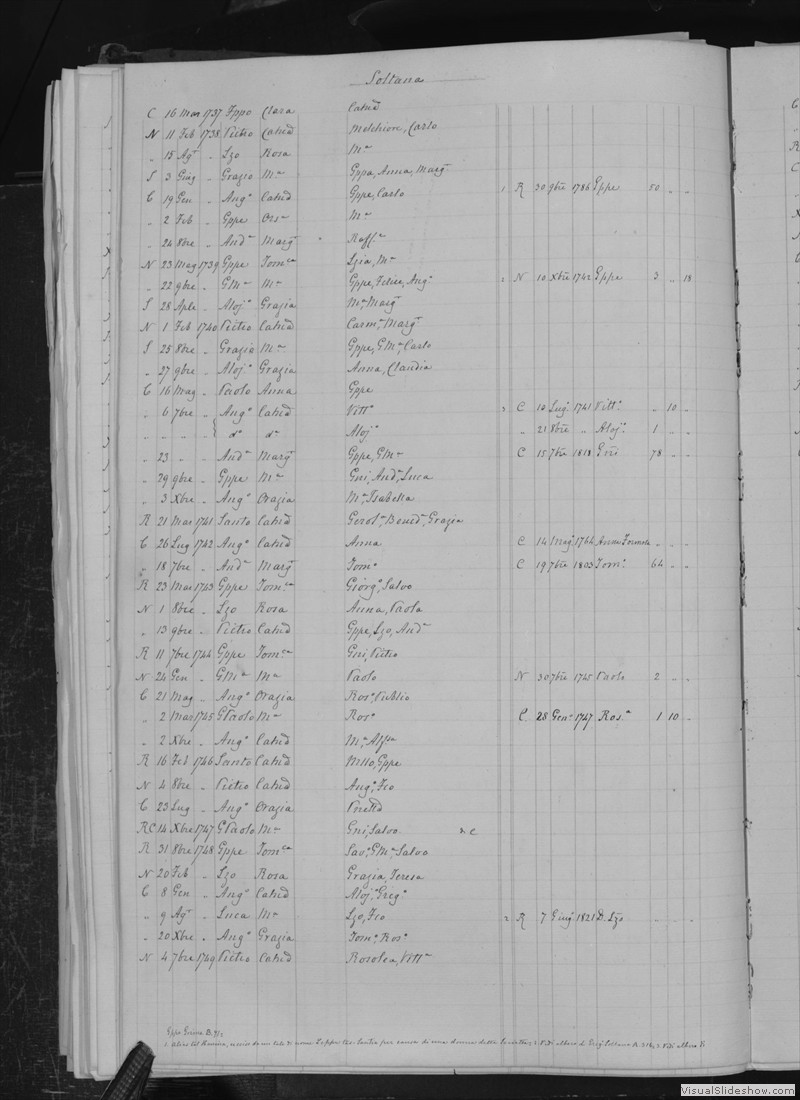 Soltana
C 16 Mar 1737 Fppo Clara Catnd
N 11 Feb 1738 Pietro Catnd Melchiore, Carlo
" 15 Agt " Lzo Rosa Ma
S 3 Giug " Grazio Ma Gppa, Anna, Margt
C 19 Gen " Ango Catnd Gppe, Carlo 1 R 30 9bre 1786 Gppe 50 " "
" 2 Feb " Gppe Orsa Ma
" 24 8bre " Anda Margt Raffa
N 23 Mag 1739 Gppe Tomca Lzia, Ma
" 22 9bre " GMa Ma Gppe, Felice, Ango 2 N 10 Xbre 1742 Gppe 3 " 18
S 28 Aple " Alojo Grazia Ma Margt
N 1 Feb 1740 Pietro Catnd Carmo Margt
S 25 8bre " Grazio Ma Gppe, GMa, Carlo
" 27 9bre " Alojo Grazia Anna, Claudia
C 16 Mag " Paolo Anna Gppe
" 6 7bre " Ango Catnd Vitta 3 C 10 Lugo 1741 Vitta " 10 "
" " " " do do Alojo " 21 8bre " Alojo 1 " "
" 23 " " Anda Margt Gppe, GMa C 15 7bre 1818 Gni 78 " "
" 29 9bre " Gppe Ma Gni, Anda Luca
" 3 Xbre " Ango Orazia Ma Isabella
R 21 Mar 1741 Santo Catnd Gerola Bened, Grazia
C 26 Lug 1742 Ango Catnd Anna C 14 Mago 1764 Anna " " "
" 18 7bre " Anda Margt Tomo C 19 7bre 1803 Tomo 64 " "
R 23 Mar 1743 Gppe Tomca Giorgo, Salvo
N 1 8bre " Lzo Rosa Anna, Paola
" 13 9bre " Pietro Catnd Gppe, Lzo, Anda
R 11 7bre 1744 Gppe Tomca Gni, Pietro
N 24 Gen " GMa Ma Paolo N 30 7bre 1745 Paolo 2 " "
C 21 Mag " Ango Orazia Rosa Publio
" 2 Mar 1745 GPaolo Ma Rosa C 28 Geno 1747 Rosa 1 10 "
" 2 Xbre " Ango Catnd Ma Alfsa
R 16 Feb 1746 Santo Catnd Mllo, Gppe
N 4 8bre " Pietro Catnd Ango, Fco
C 23 Lug " Ango Orazia
RC 14 Xbre 1747 GPaolo Ma Gni, Salvo
R 31 8bre 1748 Gppe Tomca Savo GMa Salvo
N 20 Feb " Lzo Rosa Grazia, Teresa
C 8 Gen " Ango Catnd Alojo, Grego
" 9 Agt " Luca Ma Lzo, Fco 2 R 7 Giugo 1821 D. Lzo " " "
" 20 Xbre " Ango Grazia Tomo Rosa
N 4 7bre 1749 Pietro Catnd Rosolea, Vitta
VisualSlideshow.com